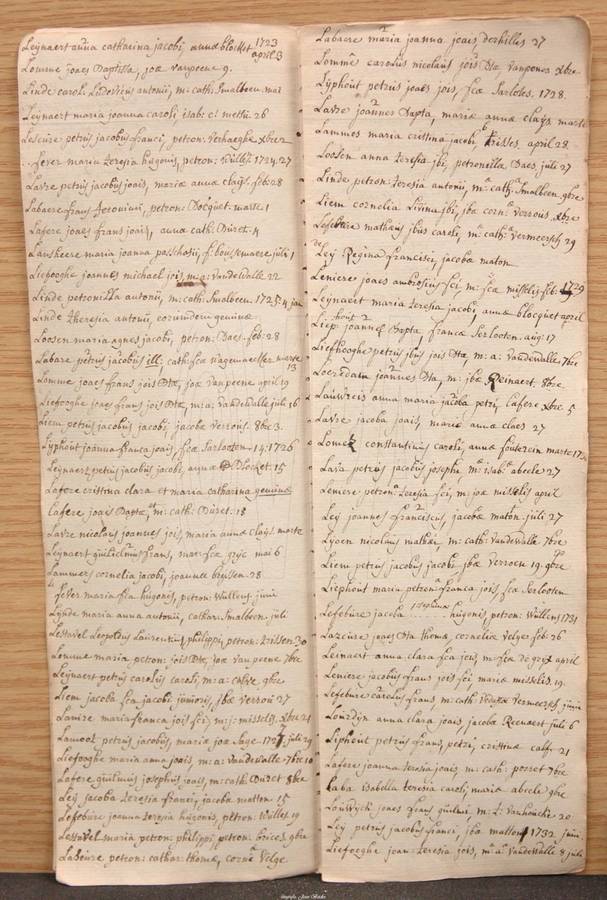 Leijnaert anna catharina jacobi, annæ blocket 1723 april 3
Lomme joaes Baptista, joæ vanpeene 9.
Linde caroli Ludovicus antonii, m: cath: Smalbeen mai
Leijnaert maria joanna caroli, isab: cl mettu 26
Lescure petrus jacobus franci, petron: Verhaeghe xbre 2
fever maria teresia hugonis, petron: Willes 1724. 27
Lavre petrus jacobus joais, mariæ annæ claijs, feb: 28
Labaere frans Jeronimi, petron: Docquet. marte 1
Lafere joaes frans joais, anna cath: Duret. 4
Lansheere maria joanna passchasii, f: boussemaere juli 1
Liefooghe joannes michael jois, m: a: Vandewalle 22
Linde petronilla antonii, m: cath: Smalbeen. 1725. 4 jan
Linde theresia antonii, eorumdem geminæ
Loosen maria agnes jacobi, petron: Daes. feb: 28
Labare petrus jacobus ill: cath: fcæ Wagemaecker marte 13
Lomme joaes frans jois Btæ, joæ van peene april 19
Liefooghe joaes frans jois Btæ, m: a: vandewalle juli 16
Liem petrus jacobus jacobi, jacobæ Verrous. 8bre 3.
Lijphout joanna franca joais, fcæ Sarlooten 14: 1726
Leijnaert petrus jacobus jacobi, agnæ Blocket. 15
Lafere cristina clara et maria catharina geminæ
Lafere joais Baptæ, et m: cath: Duret. 18
Lavre nicolaus joannes jois, maria annæ claijs. marte
Leijnaert guilielmus frans, mar: fcæ 6
Lammers cornelia jacobi, joannæ brussen. 28
fever maria fca hugonis, petron: Wullens junii
Lynde maria anna antonii, cathar: Smalbeen juli
Lestavel Leopoldus Laurentius, philippi, petron: 20
Lomme maria petron: jois Btæ, joæ van peene 7bre
Leijnaert petrus carolus caroli, m: a: calve 9bre
Liem jacoba fca jacobi junioris, jbæ verrou 27
Laniere maria franca jois fci, m: j: misselis. xbre 21
Lamoot petrus jacobus, maria joæ Sage 1727 juli 29
Liefooghe maria anna joais, m: a: vandewalle 7bre 10
Lafere guilmus josephus joais, m: cath: Duret 8bre
Leij jacoba Teresia francis, jacoba matton. 15
Lefebure joanna teresia hugonis, petron: Wulles. 19
Lestavel maria petron: philippi, petron: 9bre
Laseure petron: cathar: thomæ, corne Velge
Labaere maria joanna joais, derhilles 27
Lomme carolus nicolaus jois Btæ, vanpenoæ xbre
Lijphout petrus joaes jois, fcæ Sarlotes. 1728.
Lavre joannes Bapta, mariæ annæ claijs marte
Lammes maria cristina jacobi, brisses april 28
Loosen anna teresia jbi, petronilla Daes juli 27
Linde petron: teresia antonii, m: cath: Smalbeen. 9bre
Liem cornelia Livina jbi, jba corne Verrois. xbre
Lefebure matheus jbus caroli, m: cath: Vermeersch 29
de Leij Regina francisci, jacoba maton.
Leniere joaes ambrosius fci, m: fcæ misselis. feb: 1729
Leijnaert maria teresia jacobi, annæ blocquet april
Liephout joannes Bapta franca Serlooten. aug: 17
Liefhooghe petrus jbus jois Btæ, m: a: Vandewalle 7bre
Loeredan joannes Bta, m: jbæ Reinaert 8bre
Lauwreis anna maria jacoba petri, Lafere xbre 5
Lavre jacoba joais, mariæ annæ claes 27
Lomez constantinus caroli, annæ fonteein marte
Lava petrus jacobus josephi, m: isab: abeele 27
Leniere petron: Teresia fci, m: joæ misselis april
Leij joannes franciscus, jacobæ maton juli 27
Lyoen nicolaus mathæi, m: cath: Vandewalle 7bre
Liem petrus jacobus jacobi jbæ Verroen 19. 9bre
Liephout maria petron: franca jois, fcæ Serlooten
Lefebure jacoba josephina hugonis, petron: Wullens 1731
Lazeure joaes Bta thomæ, cornelia Velges feb: 26
Leinaert anna clara fcæ jois, m: fcæ de gryze april
Leniere jacobus frans jois fci mariæ misselis. 19.
Lefebure carolus frans, m: cath Vermeersch, junii
Lourdyn anna clara joais, jacoba Reenaert juli 6
Liphout petrus frans, petri, cristina calf. 21
Lafere joanna teresia joais, m: cath: porret 7bre
Laba isabella teresia caroli, mariæ abeele 9bre
Louwyck joaes frans guilmi, m: t: Vanhoucke 20.
Leij petrus jacobus franci, jba matton 1732 junii
Liefooghe joan: Teresia jois, m: a: Vandewalle 8 juli